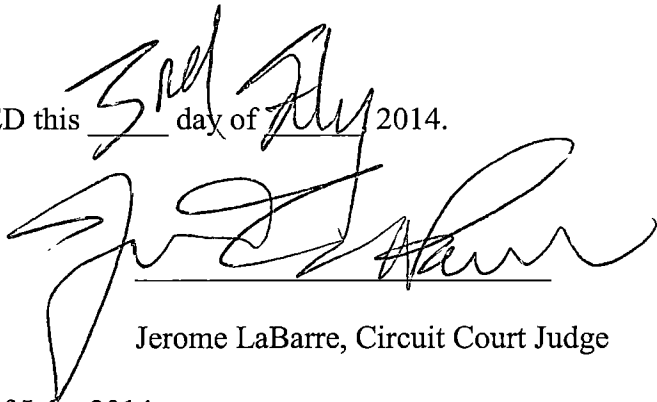 ED this 3rd day of July 2014.
Jerome LaBarre, Circuit Court Judge
2014